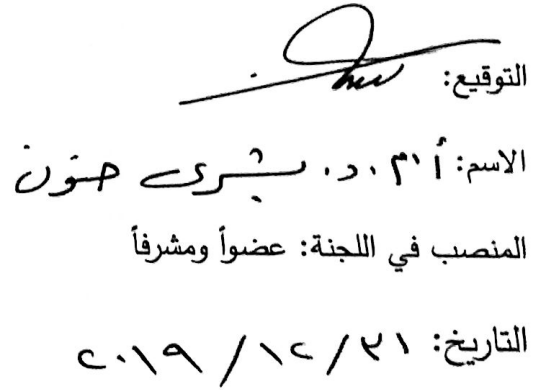 التوقيع:
الاسم: أ.م.د. بشرى حنون
المنصب في اللجنة: عضواً ومشرفاً
التاريخ: ٣١/١٢/٢٠١٩